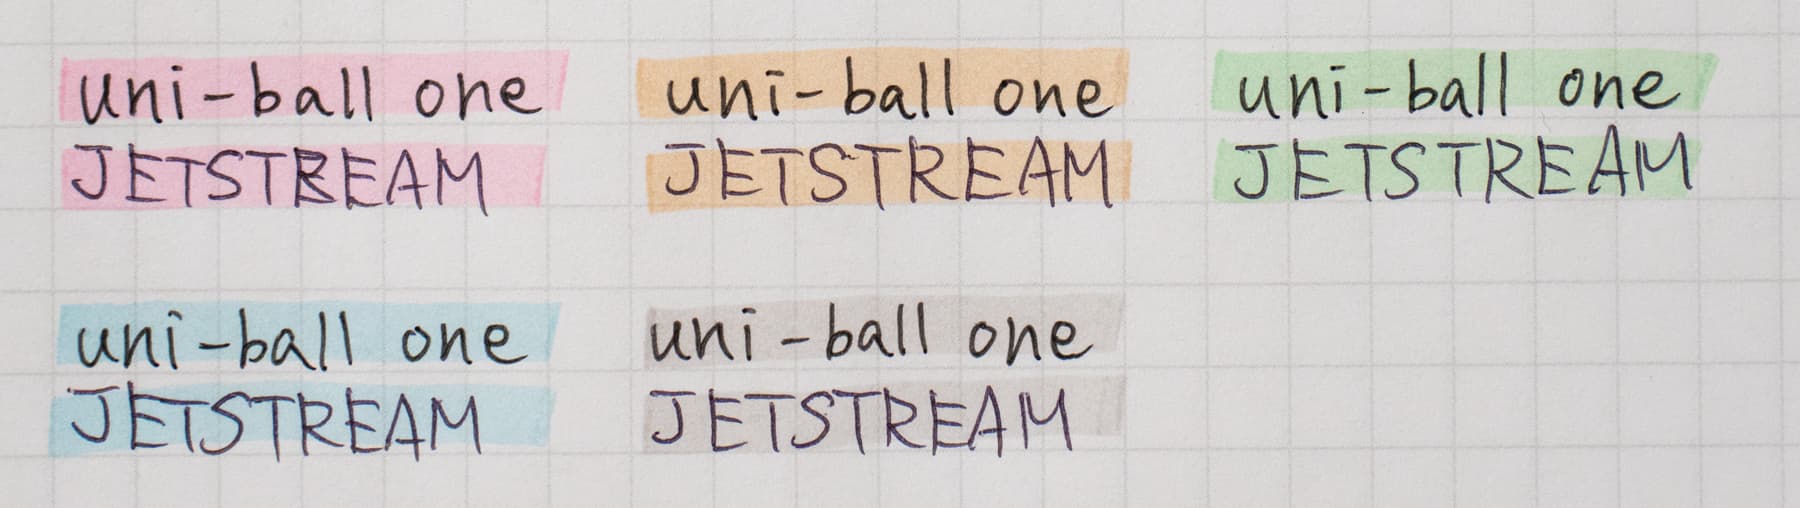 uni-ball one uni-ball one uni-ball one
JETSTREAM JETSTREAM JETSTREAM
uni-ball one uni-ball one
JETSTREAM JETSTREAM